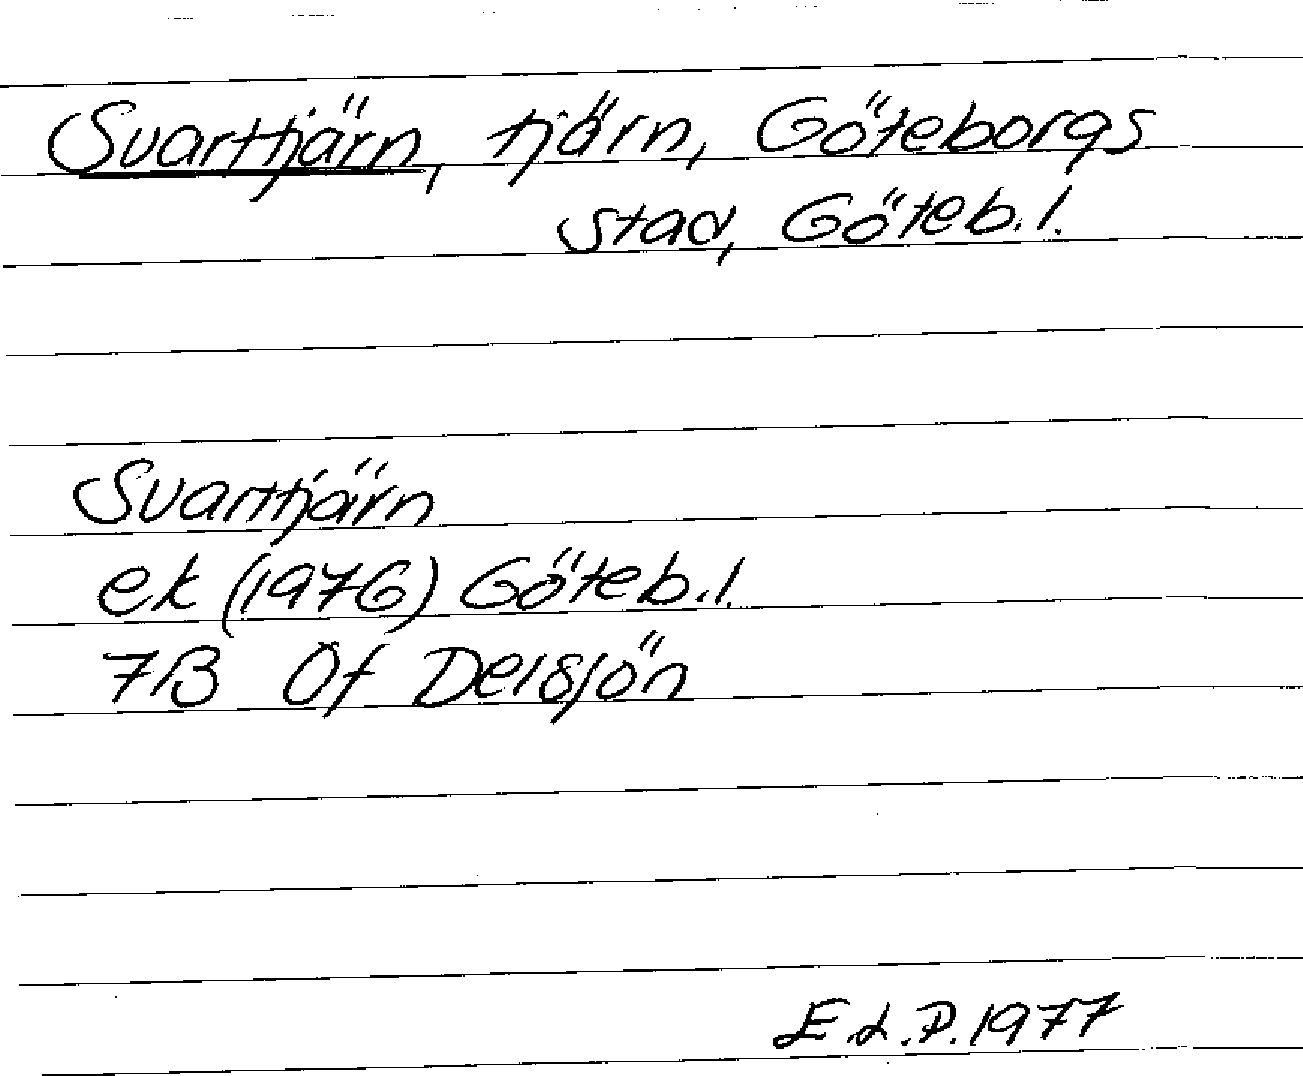 Svarttjärn, tjärn, Göteborgs
stad, Göteb.l.
Svarttjärn
ek (1976) Göteb.l.
7B 0f Delsjön
E.L.P. 1977